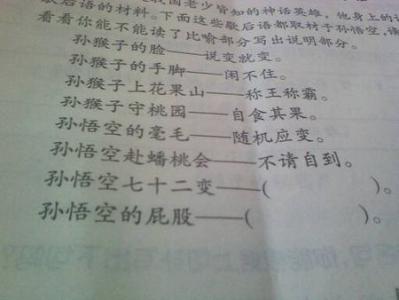 歇后语的材料。下面这些歇后语都取材于孙悟空,请
看看你能不能读了比喻部分写出说明部分。
孙猴子的脸——说变就变。
孙猴子的手脚——闲不住。
孙猴子上花果山——称王称霸。
孙猴子守桃园——自食其果。
孙悟空的毫毛——随机应变。
孙悟空赴蟠桃会——不请自到。
孙悟空七十二变——( )。
孙悟空的屁股——( )。